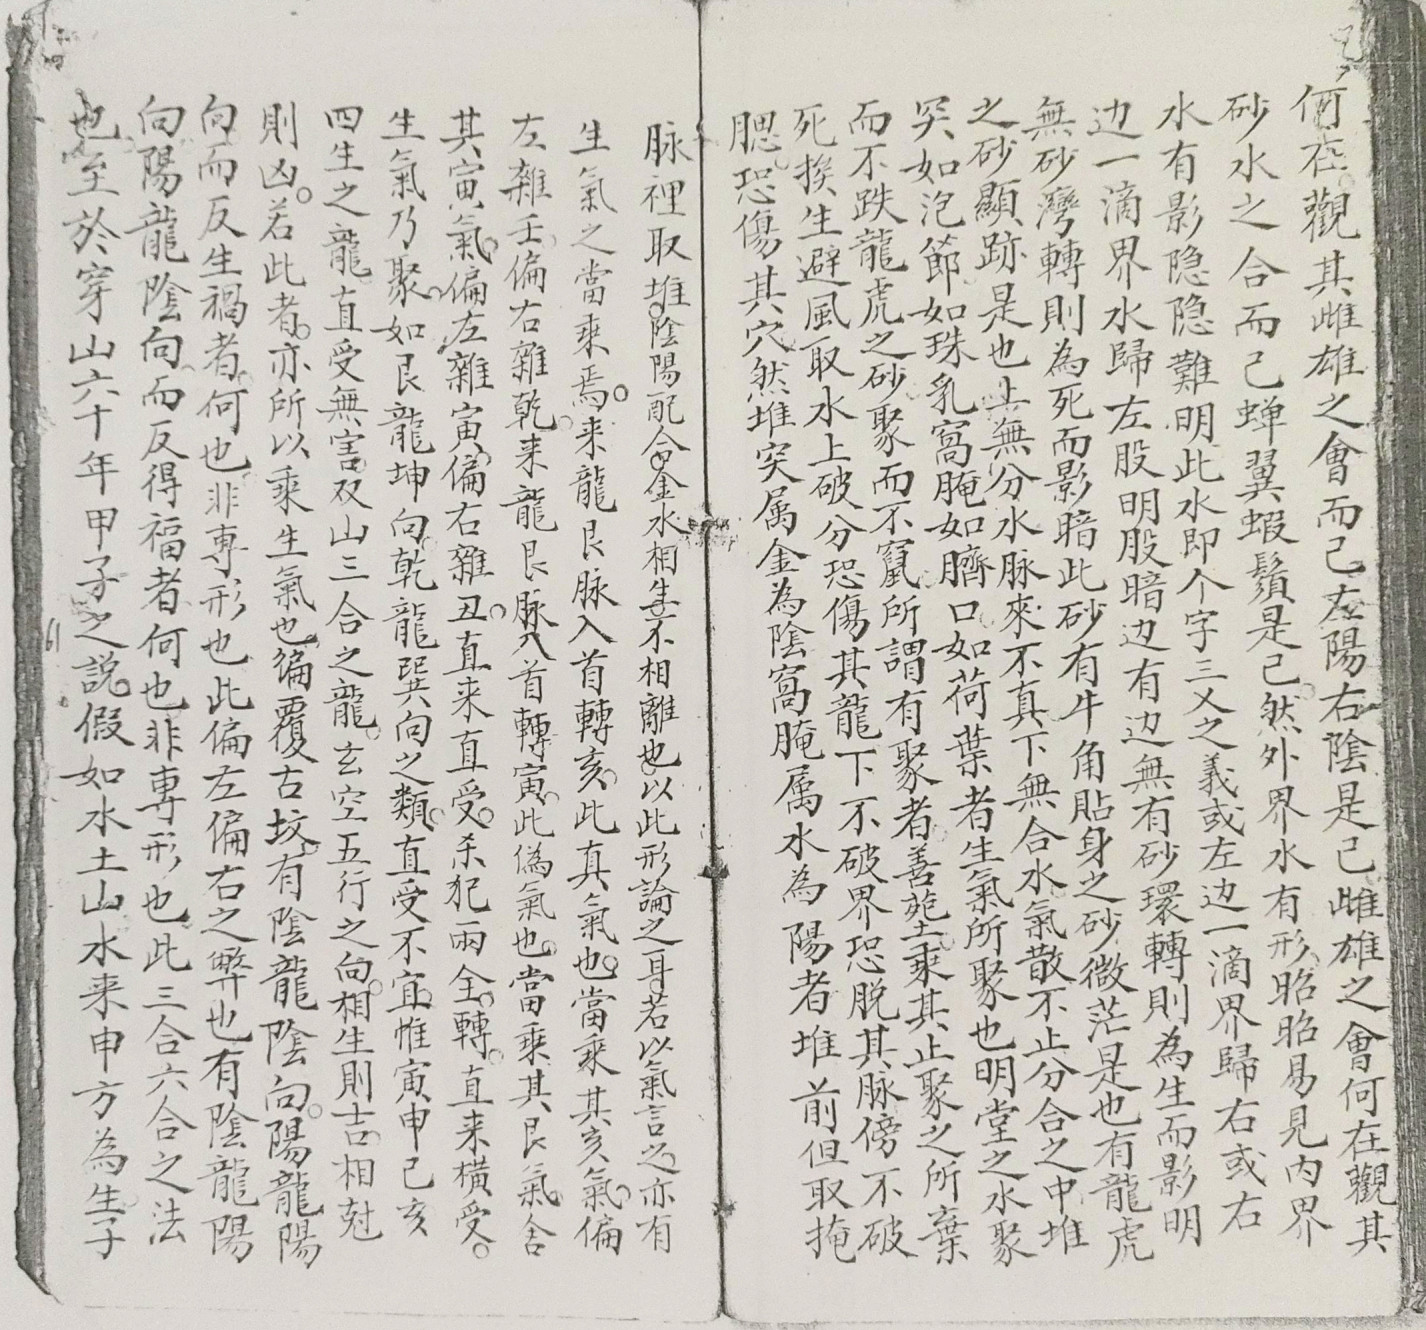 何在。觀其雌雄之會而已左陽右陰是已雌雄之會何在觀其
砂水之合而已蟬翼蝦鬚是已然外界水有形昭昭易見內界
水有影隐隐難明此水即个字三义之義或左边一滴界歸右或右
边一滴界水歸左股明股暗边有边無有砂環轉則為生而影明
無砂灣轉則為死而影暗此砂有牛角貼身之砂微茫是也有龍虎
之砂顯跡是也上無分水脉來不真下無合水氣散不止分合之中堆
突如泡節如珠乳窩腌如臍口如荷葉者生氣所聚也明堂之水聚
而不跌龍虎之砂聚而不竄所謂有聚者善塟乘其止聚之所棄
死挨生避風取水上破分恐傷其龍下不破界恐脱其脉傍不破
腮。恐傷其穴然堆突属金為陰窩腌属水為陽者堆前但取掩
脉裡取堆。陰陽配合。金水相生不相離也。以此形論之耳若以氣言之亦有
生氣之當乘焉。来龍艮脉入首轉亥。此真氣也。當乘其亥氣偏
左雜壬偏右雜乾来龍艮脉入首轉寅。此偽氣也。當乘其艮氣舍
其寅氣。偏左雜寅偏右雜丑。直来直受。杀犯兩全。轉。直来横受。
生氣乃聚。如艮龍坤向。乾龍巽向之類。直受不宜。惟寅申巳亥
四生之龍。直受無害双山三合之龍。玄空五行之向。相生則吉。相尅
則凶。若此者。亦所以乘生氣也。徧覆古坟。有陰龍陰向。陽龍陽
向。而反生禍者。何也。非專形也此偏左偏右之弊也有陰龍陽
向陽龍陰向而反得福者何也非專形也。此三合六合之法
也。至於穿山六十年甲子之説。假如水土山水来申方為生子
61